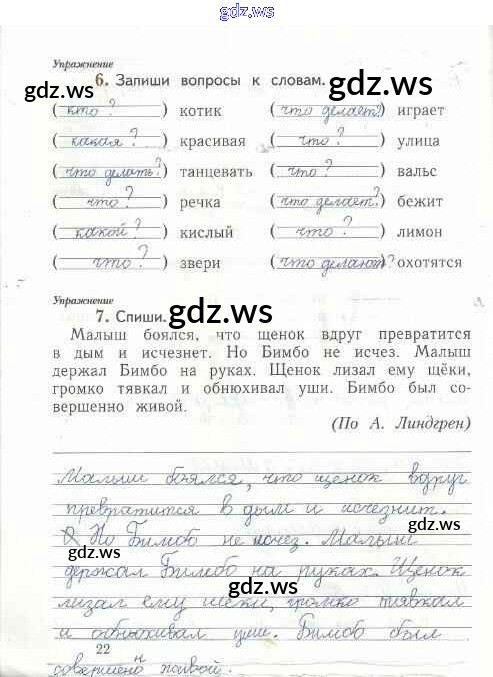 gdz.ws
Упражнение
6. Запиши вопросы к словам. gdz.ws
( кто? ) котик ( что делает? ) играет
( какая? ) красивая ( что? ) улица
( что делать? ) танцевать ( что? ) вальс
( что? ) речка ( что делает? ) бежит
( какой? ) кислый ( что? ) лимон
( что? ) звери ( что делают? ) охотятся
gdz.ws
Упражнение
7. Спиши.
Малыш боялся, что щенок вдруг превратится
в дым и исчезнет. Но Бимбо не исчез. Малыш
держал Бимбо на руках. Щенок лизал ему щёки,
громко тявкал и обнюхивал уши. Бимбо был со-
вершенно живой.
gdz.ws
(По А. Линдгрен)
Малыш боялся, что щенок вдруг
превратится в дым и исчезнит.
Но Бимоб не исчез. Малыш
gdz.ws
держал Бимбо на руках. Щенок
gdz.ws
лизал ему щеки, громко тявкал
и обнюхивал уши. Бимбо был
22
совершено н живой.
gdz.ws